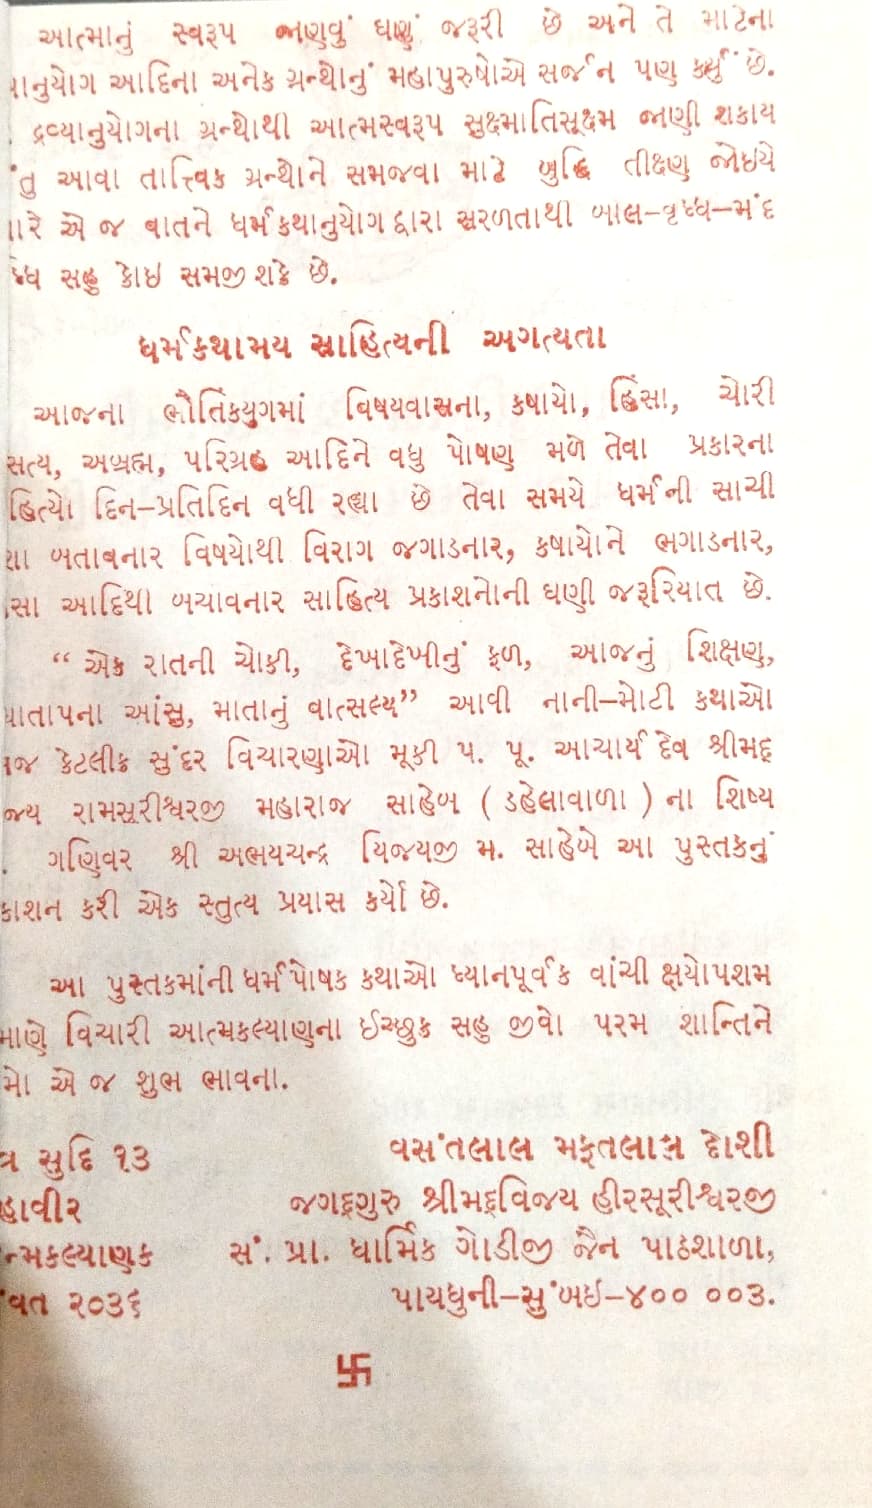 આત્માનું સ્વરૂપ જાણવું ઘણું જરૂરી છે અને તે માટેના
ાનુયોગ આદિના અનેક ગ્રન્થોનું મહાપુરુષોએ સર્જન પણ કર્યું છે.
દ્રવ્યાનુયોગના ગ્રન્થોથી આત્મસ્વરૂપ સુક્ષ્માતિસૂક્ષ્મ જાણી શકાય
ંતુ આવા તાત્ત્વિક ગ્રન્થોને સમજવા માટે બુદ્ધિ તીક્ષ્ણ જોઇયે
ારે એ જ વાતને ધર્મકથાનુયોગ દ્વારા સરળતાથી બાલ–વૃધ્ધ–મંદ
ધ્ધ સહુ કોઇ સમજી શકે છે.
ધર્મકથામય સાહિત્યની અગત્યતા
આજના ભૌતિકયુગમાં વિષયવાસના, કષાયો, હિંસા, ચોરી
સત્ય, અબ્રહ્મ, પરિગ્રહ આદિને વધુ પોષણ મળે તેવા પ્રકારના
હિત્યો દિન–પ્રતિદિન વધી રહ્યા છે તેવા સમયે ધર્મની સાચી
શા બતાવનાર વિષયોથી વિરાગ જગાડનાર, કષાયોને ભગાડનાર,
ંસા આદિથી બચાવનાર સાહિત્ય પ્રકાશનોની ઘણી જરૂરિયાત છે.
“ એક રાતની ચોકી, દેખાદેખીનું ફળ, આજનું શિક્ષણ,
ચાતાપના આંસુ, માતાનું વાત્સલ્ય” આવી નાની–મોટી કથાઓ
ાજ કેટલીક સુંદર વિચારણાઓ મૂકી પ. પૂ. આચાર્ય દેવ શ્રીમદ્
જય રામસૂરીશ્વરજી મહારાજ સાહેબ ( ડહેલાવાળા ) ના શિષ્ય
. ગણિવર શ્રી અભયચન્દ્ર વિજયજી મ. સાહેબે આ પુસ્તકનું
કાશન કરી એક સ્તુત્ય પ્રયાસ કર્યો છે.
આ પુસ્તકમાંની ધર્મપોષક કથાઓ ધ્યાનપૂર્વક વાંચી ક્ષયોપશમ
માણે વિચારી આત્મકલ્યાણના ઈચ્છુક સહુ જીવો પરમ શાન્તિને
મો એ જ શુભ ભાવના.
ત્ર સુદિ ૧૩ વસંતલાલ મફતલાલ દોશી
હાવીર જગદ્ગુરુ શ્રીમદ્વિજય હીરસૂરીશ્વરજી
ન્મકલ્યાણક સં. પ્રા. ધાર્મિક ગોડીજી જૈન પાઠશાળા,
ંવત ૨૦૩૬ પાયધુની–મુંબઇ–૪૦૦ ૦૦૩.
卐